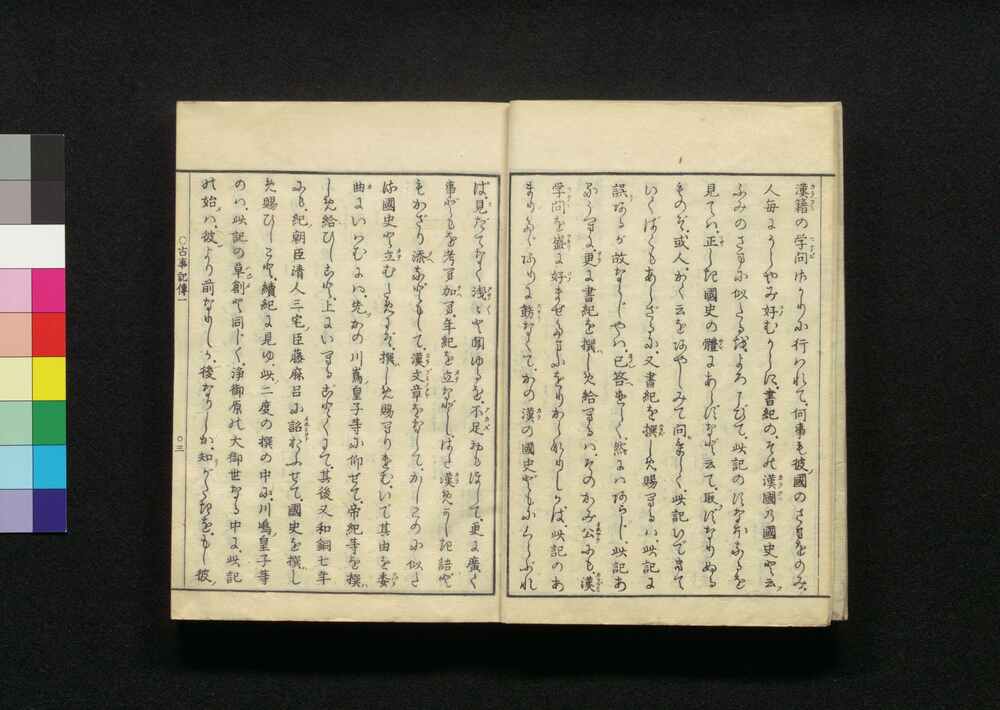 漢籍の学問さかりに行はれて、何事も彼國のさまをのみ、
人毎にうらやみ好むからに、書紀の、その漢國の國史と云、
ふみのさまに似たるをよろこびて、此記のすなほなるを
見ては、正しき國史の體にあらずなど云て、取ずなりぬる
ものぞ、或人、かく云をあやしみて問けらく、此記いできて
いくばくもあらざるに、又書紀を撰しめ賜へるは、此記に
誤あるが故ならじやは、己答けらく、然にはあらじ、此記あ
るうへに、更に書紀を撰しめ給へるは、そのかみ公にも、漢
学問を盛に好ませたまふをりからなりしかば、此記のあ
まりたゞありに飾なくて、かの漢の國史どもにくらぶれ
ば、見だてなく浅々と聞ゆるを、不足おもほして、更に廣く
事どもを考へ加へ、年紀を立などし、はた漢めかしき語ど
もかざり添などもして、漢文章をなして、かしこのに似た
る國史と立むためにぞ、撰しめ賜へりけむ、いで其由を委
曲にいはむには、先かの川嶋皇子等に仰せて、帝紀等を撰
しめ給ひしこと、上にいへるごとくにて、其後又和銅七年
にも、紀朝臣清人三宅臣藤麻呂に詔おふせて、國史を撰し
め賜ひしこと、續紀に見ゆ、此二度の撰の中に、川嶋皇子等
のは、此記の草創と同じく、浄御原の大御世なる中に、此記
の始は、彼より前なりしか、後なりしか、知がたきを、もし彼
○古事記傳一
○三